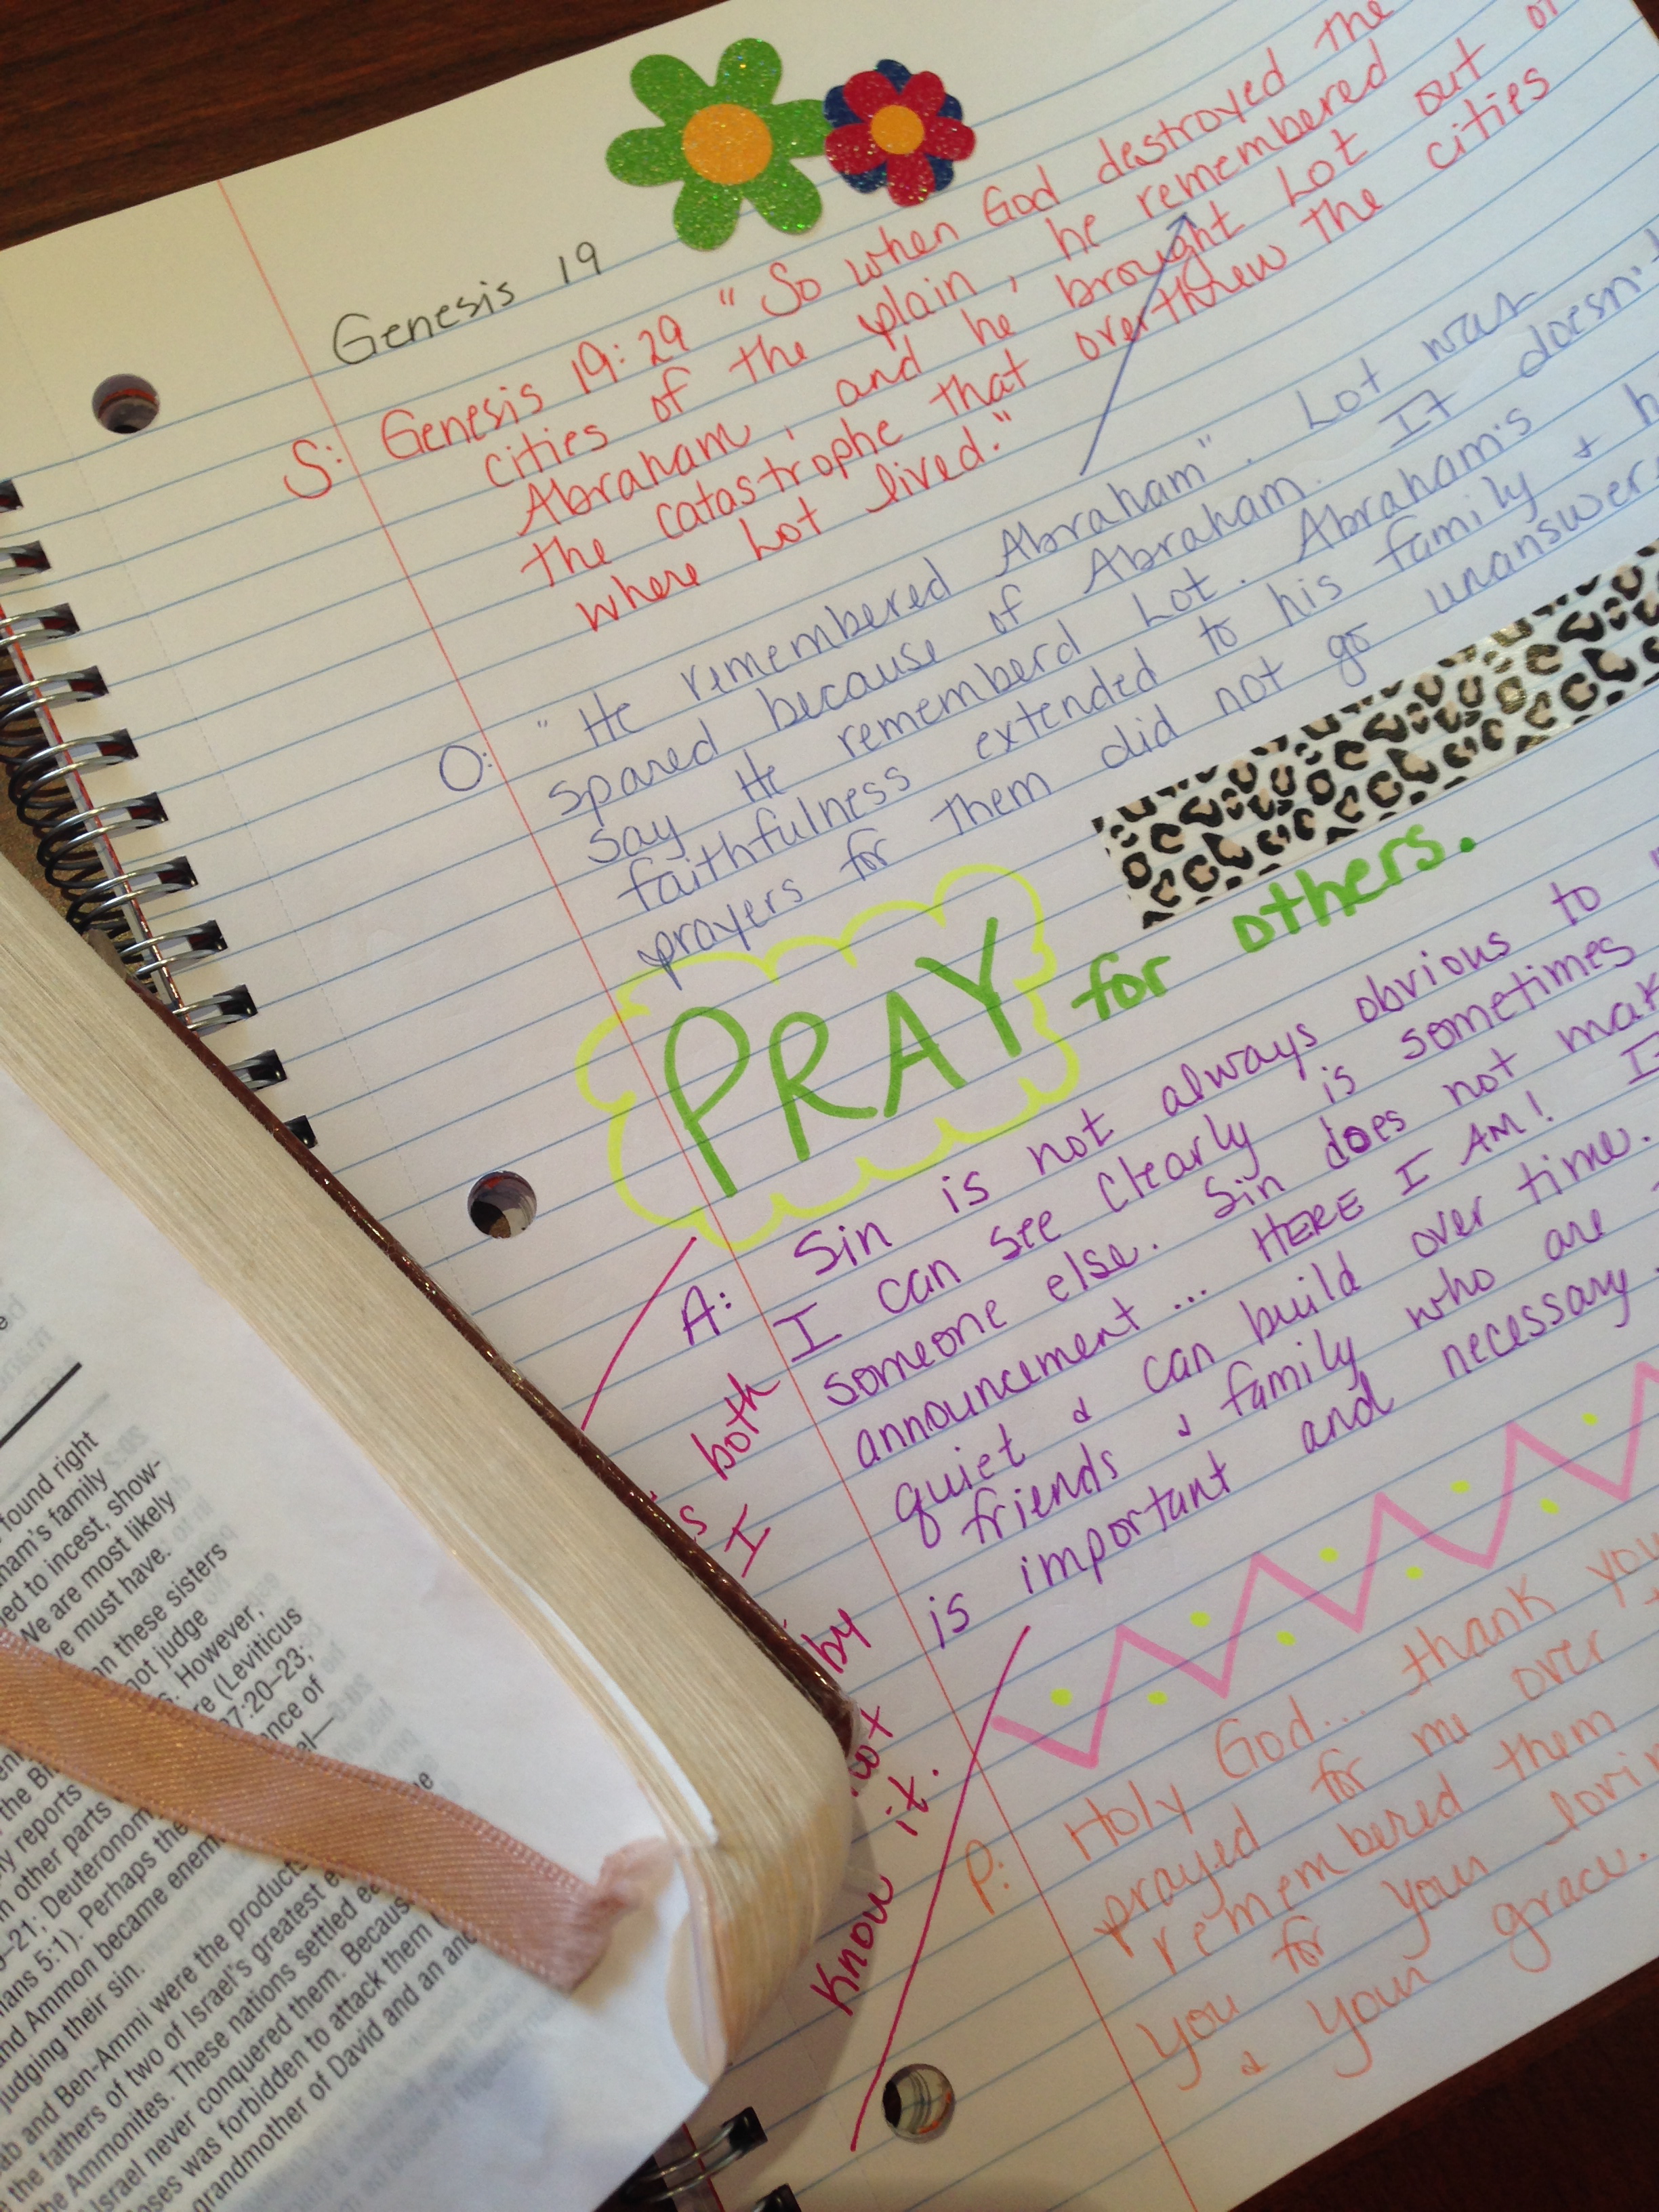 Genesis 19
S: Genesis 19:29 "So when God destroyed the
cities of the plain, he remembered
Abraham, and he brought Lot out of
the catastrophe that overthrew the cities
where Lot lived."
O: "He remembered Abraham". Lot was
spared because of Abraham. It doesn't
say He rememberd Lot. Abraham's
faithfulness extended to his family &
prayers for them did not go
PRAY for others.
A: Sin is not always obvious to
I can see clearly is sometimes
someone else. Sin does not
announcement... HERE I AM! It
quiet & can build over time.
friends & family who are
is important and necessary.
both
I
by
know it.
P: Holy God... thank you
prayed for me over
remembered them
you for your
& your grace.
found right
ham's family
to incest, show-
We are most likely
must have.
these sisters
not judge
However,
(Leviticus
7:20–23;
of
the
reports
other parts
21; Deuteronom
5:1). Perhaps the
and Ammon became
judging their sin.
and Ben-Ammi were the products
the fathers of two of Israel's greatest
the Ammonites. These nations settled
Israel never conquered them. Because
was forbidden to attack them
grandmother of David and an